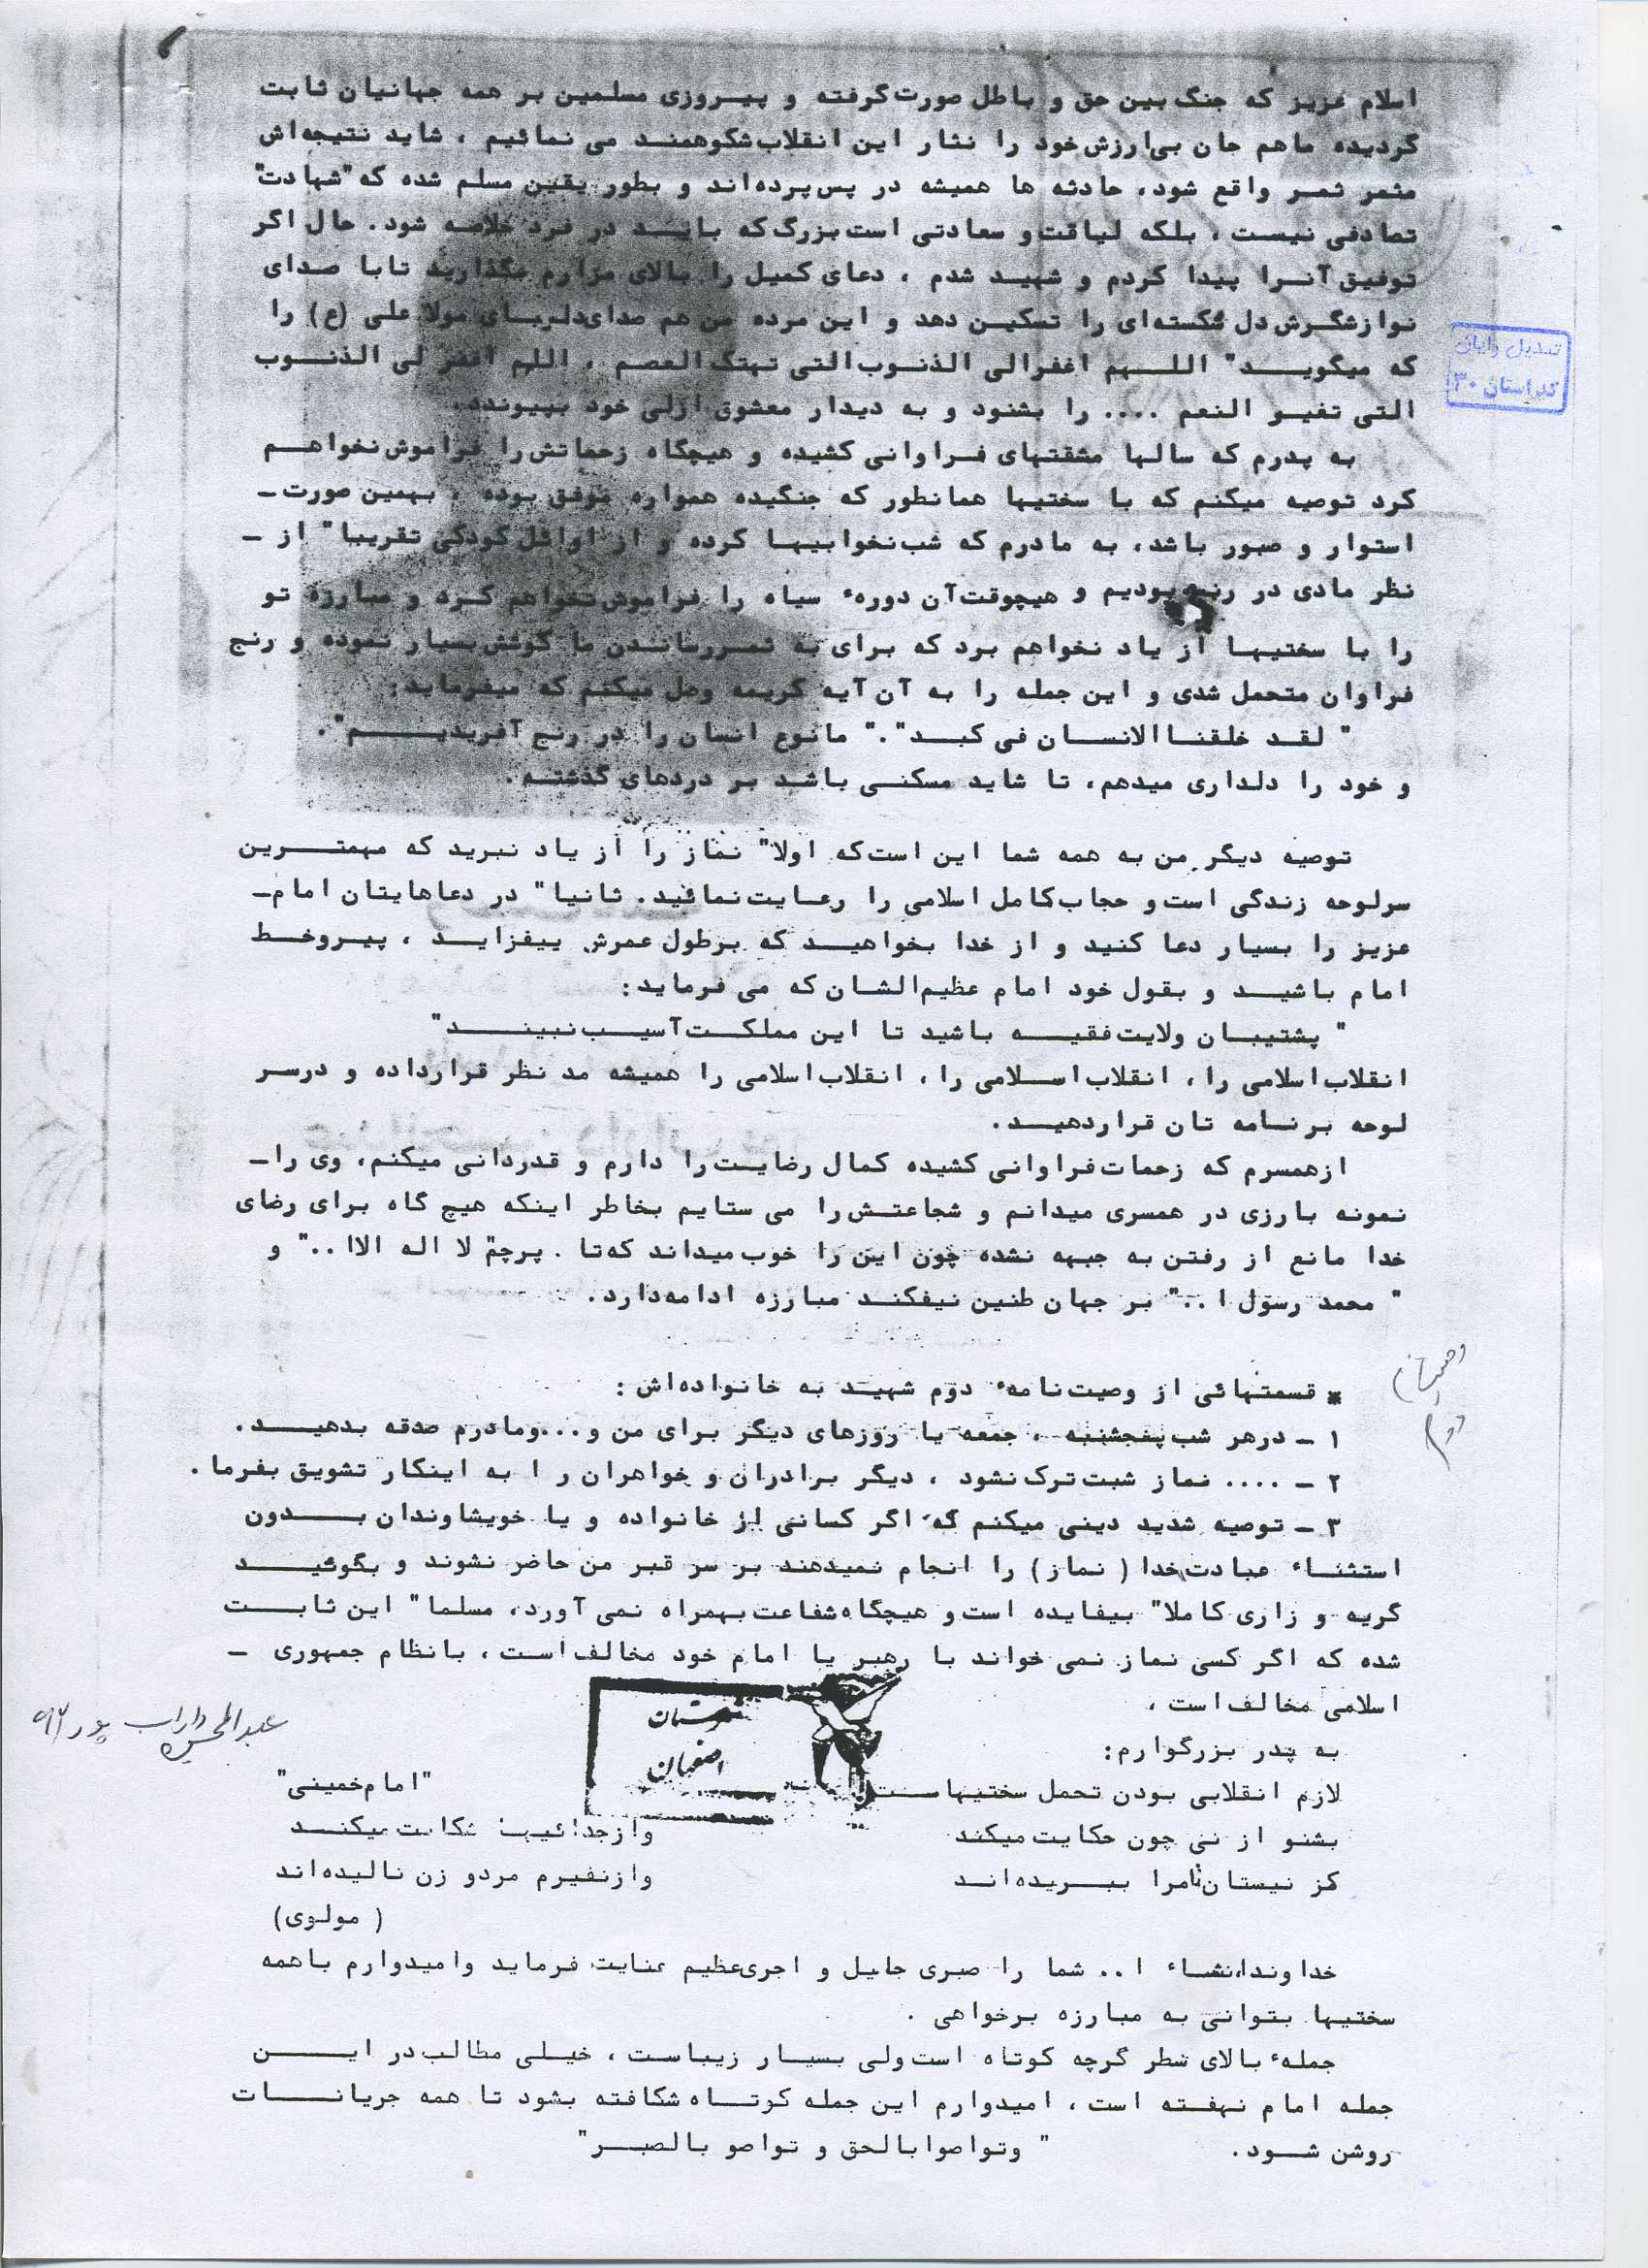 اسلام عزیز که جنگ بین حق و باطل صورت گرفته و پیروزی مسلمین بر همه جهانیان ثابت
گردیده ماهم جان بی‌ارزش خود را نثار این انقلاب شکوهمند می نمائیم ، شاید نتیجه‌اش
مثمر ثمر واقع شود، حادثه ها همیشه در پس پرده‌اند و بطور یقین مسلم شده که "شهادت"
تصادفی نیست ، بلکه لیاقت و سعادتی است بزرگ که بایـد در فرد خلاصه شود. حال اگر
توفیق آنرا پیدا کردم و شهید شدم ، دعای کمیل را بالای مزارم بگذارید تابا صدای
نوازشگرش دل شکسته‌ای را تسکین دهد و این مرده من هم صدای دلربای مولا علی (ع) را
که میگویـد" اللـهم اغفرالی الذنوب التی تهتک العصم ، اللهم اغفر لی الذنوب
التی تغیر النعم .... را بشنود و به دیدار معشوق ازلی خود بپیوندد.
به پدرم که سالها مشقتهای فراوانی کشیده و هیچگاه زحماتش را فراموش نخواهم
کرد توصیه میکنم که با سختیها همانطور که جنگیده همواره موفق بوده ، بهمین صورت ـ
استوار و صبور باشد، به مادرم که شب نخوابیها کرده و از اوائل کودکی تقریبا" از ـ
نظر مادی در رنج بودیم و هیچوقت آن دورهء سیاه را فراموش نخواهم کرد و مبارزه تو
را با سختیها از یاد نخواهم برد که برای به ثمررساندن ما کوشش بسیار نموده و رنج
فراوان متحمل شدی و این جمله را به آن آیه کریمه وصل میکنم که میفرماید:
" لقد خلقنا الانسان فی کبد"." مانوع انسان را در رنج آفریدیـم".
و خود را دلداری میدهم، تا شاید مسکنی باشد بر دردهای گذشته.
توصیه دیگر من به همه شما این است که اولا" نماز را از یاد نبرید که مهمترین
سرلوحه زندگی است و حجاب کامل اسلامی را رعایت نمائید. ثانیا" در دعاهایتان امام ـ
عزیز را بسیار دعا کنید و از خدا بخواهید که برطول عمرش بیفزاید ، پیروخط
امام باشید و بقول خود امام عظیم الشان که می فرماید:
" پشتیبان ولایت فقیه باشید تا این مملکت آسیب نبیند"
انقلاب اسلامی را ، انقلاب اسلامی را ، انقلاب اسلامی را همیشه مد نظر قرارداده و درسر
لوحه برنامه تان قراردهید.
ازهمسرم که زحمات فراوانی کشیده کمال رضایت را دارم و قدردانی میکنم، وی را ـ
نمونه بارزی در همسری میدانم و شجاعتش را می ستایم بخاطر اینکه هیچ گاه برای رضای
خدا مانع از رفتن به جبهه نشده چون این را خوب میداند که تا . پرچم" لا اله الاا .." و
" محمد رسول ا .." بر جهان طنین نیفکند مبارزه ادامه دارد.
* قسمتهائی از وصیت نامهء دوم شهید به خانواده‌اش :
۱ ـ درهر شب پنجشنبه ، جمعه یا روزهای دیگر برای من و...ومادرم صدقه بدهید.
۲ ـ .... نماز شبت ترک نشود ، دیگر برادران و خواهران را به اینکار تشویق بفرما.
۳ ـ توصیه شدید دینی میکنم که اگر کسانی از خانواده و یا خویشاوندان بدون
استثناء عبادت خدا ( نماز) را انجام نمیدهند بر سر قبر من حاضر نشوند و بگوئید
گریه و زاری کاملا" بیفایده است و هیچگاه شفاعت بهمراه نمی آورد، مسلما" این ثابت
شده که اگر کسی نماز نمی خواند با رهبر یا امام خود مخالف است ، بانظام جمهوری ـ
اسلامی مخالف است ،
به پدر بزرگوارم:
لازم انقلابی بودن تحمل سختیهاست "امام خمینی"
بشنو از نی چون حکایت میکند وازجدائیها شکایت میکند
کز نیستان تامرا ببریده‌اند وازنفیرم مردو زن نالیده‌اند
( مولوی)
خداوندانشاء ا .. شما را صبری جلیل و اجری عظیم عنایت فرماید وامیدوارم باهمه
سختیها بتوانی به مبارزه برخواهی .
جملهء بالای سطر گرچه کوتاه است ولی بسیار زیباست ، خیلی مطالب در این
جمله امام نهفته است ، امیدوارم این جمله کوتاه شکافته بشود تا همه جریانات
روشن شود. " وتواصوا بالحق و تواصو بالصبر"
کد استان ۳۰
دوم
اصفهان
عبدالحسین داراب پور ۹۲